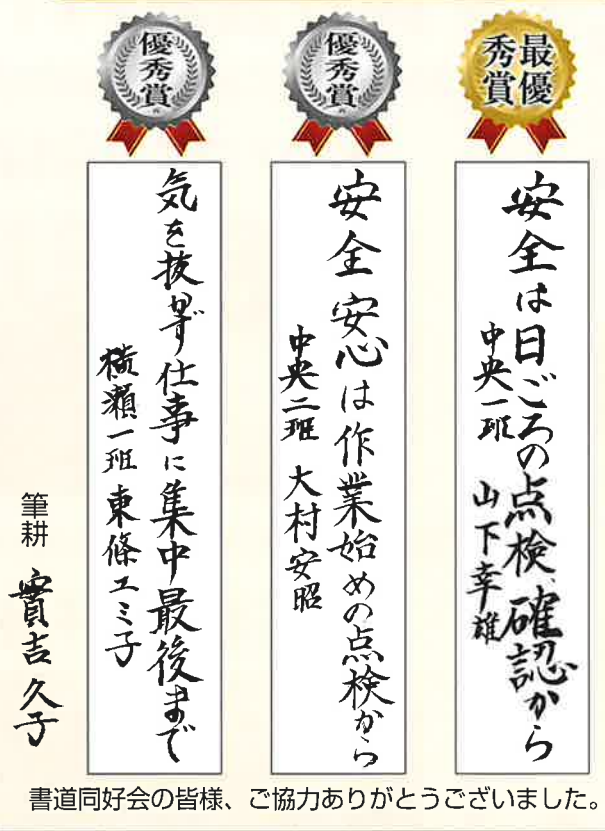 最優
秀賞
安全は日ごろの点検、確認から
中央一班 山下幸雄
優秀賞
安全安心は作業始めの点検から
中央二班 大村安昭
優秀賞
気を抜かず仕事に集中最後まで
横瀬一班 東條エミ子
筆耕 實吉久子
書道同好会の皆様、ご協力ありがとうございました。